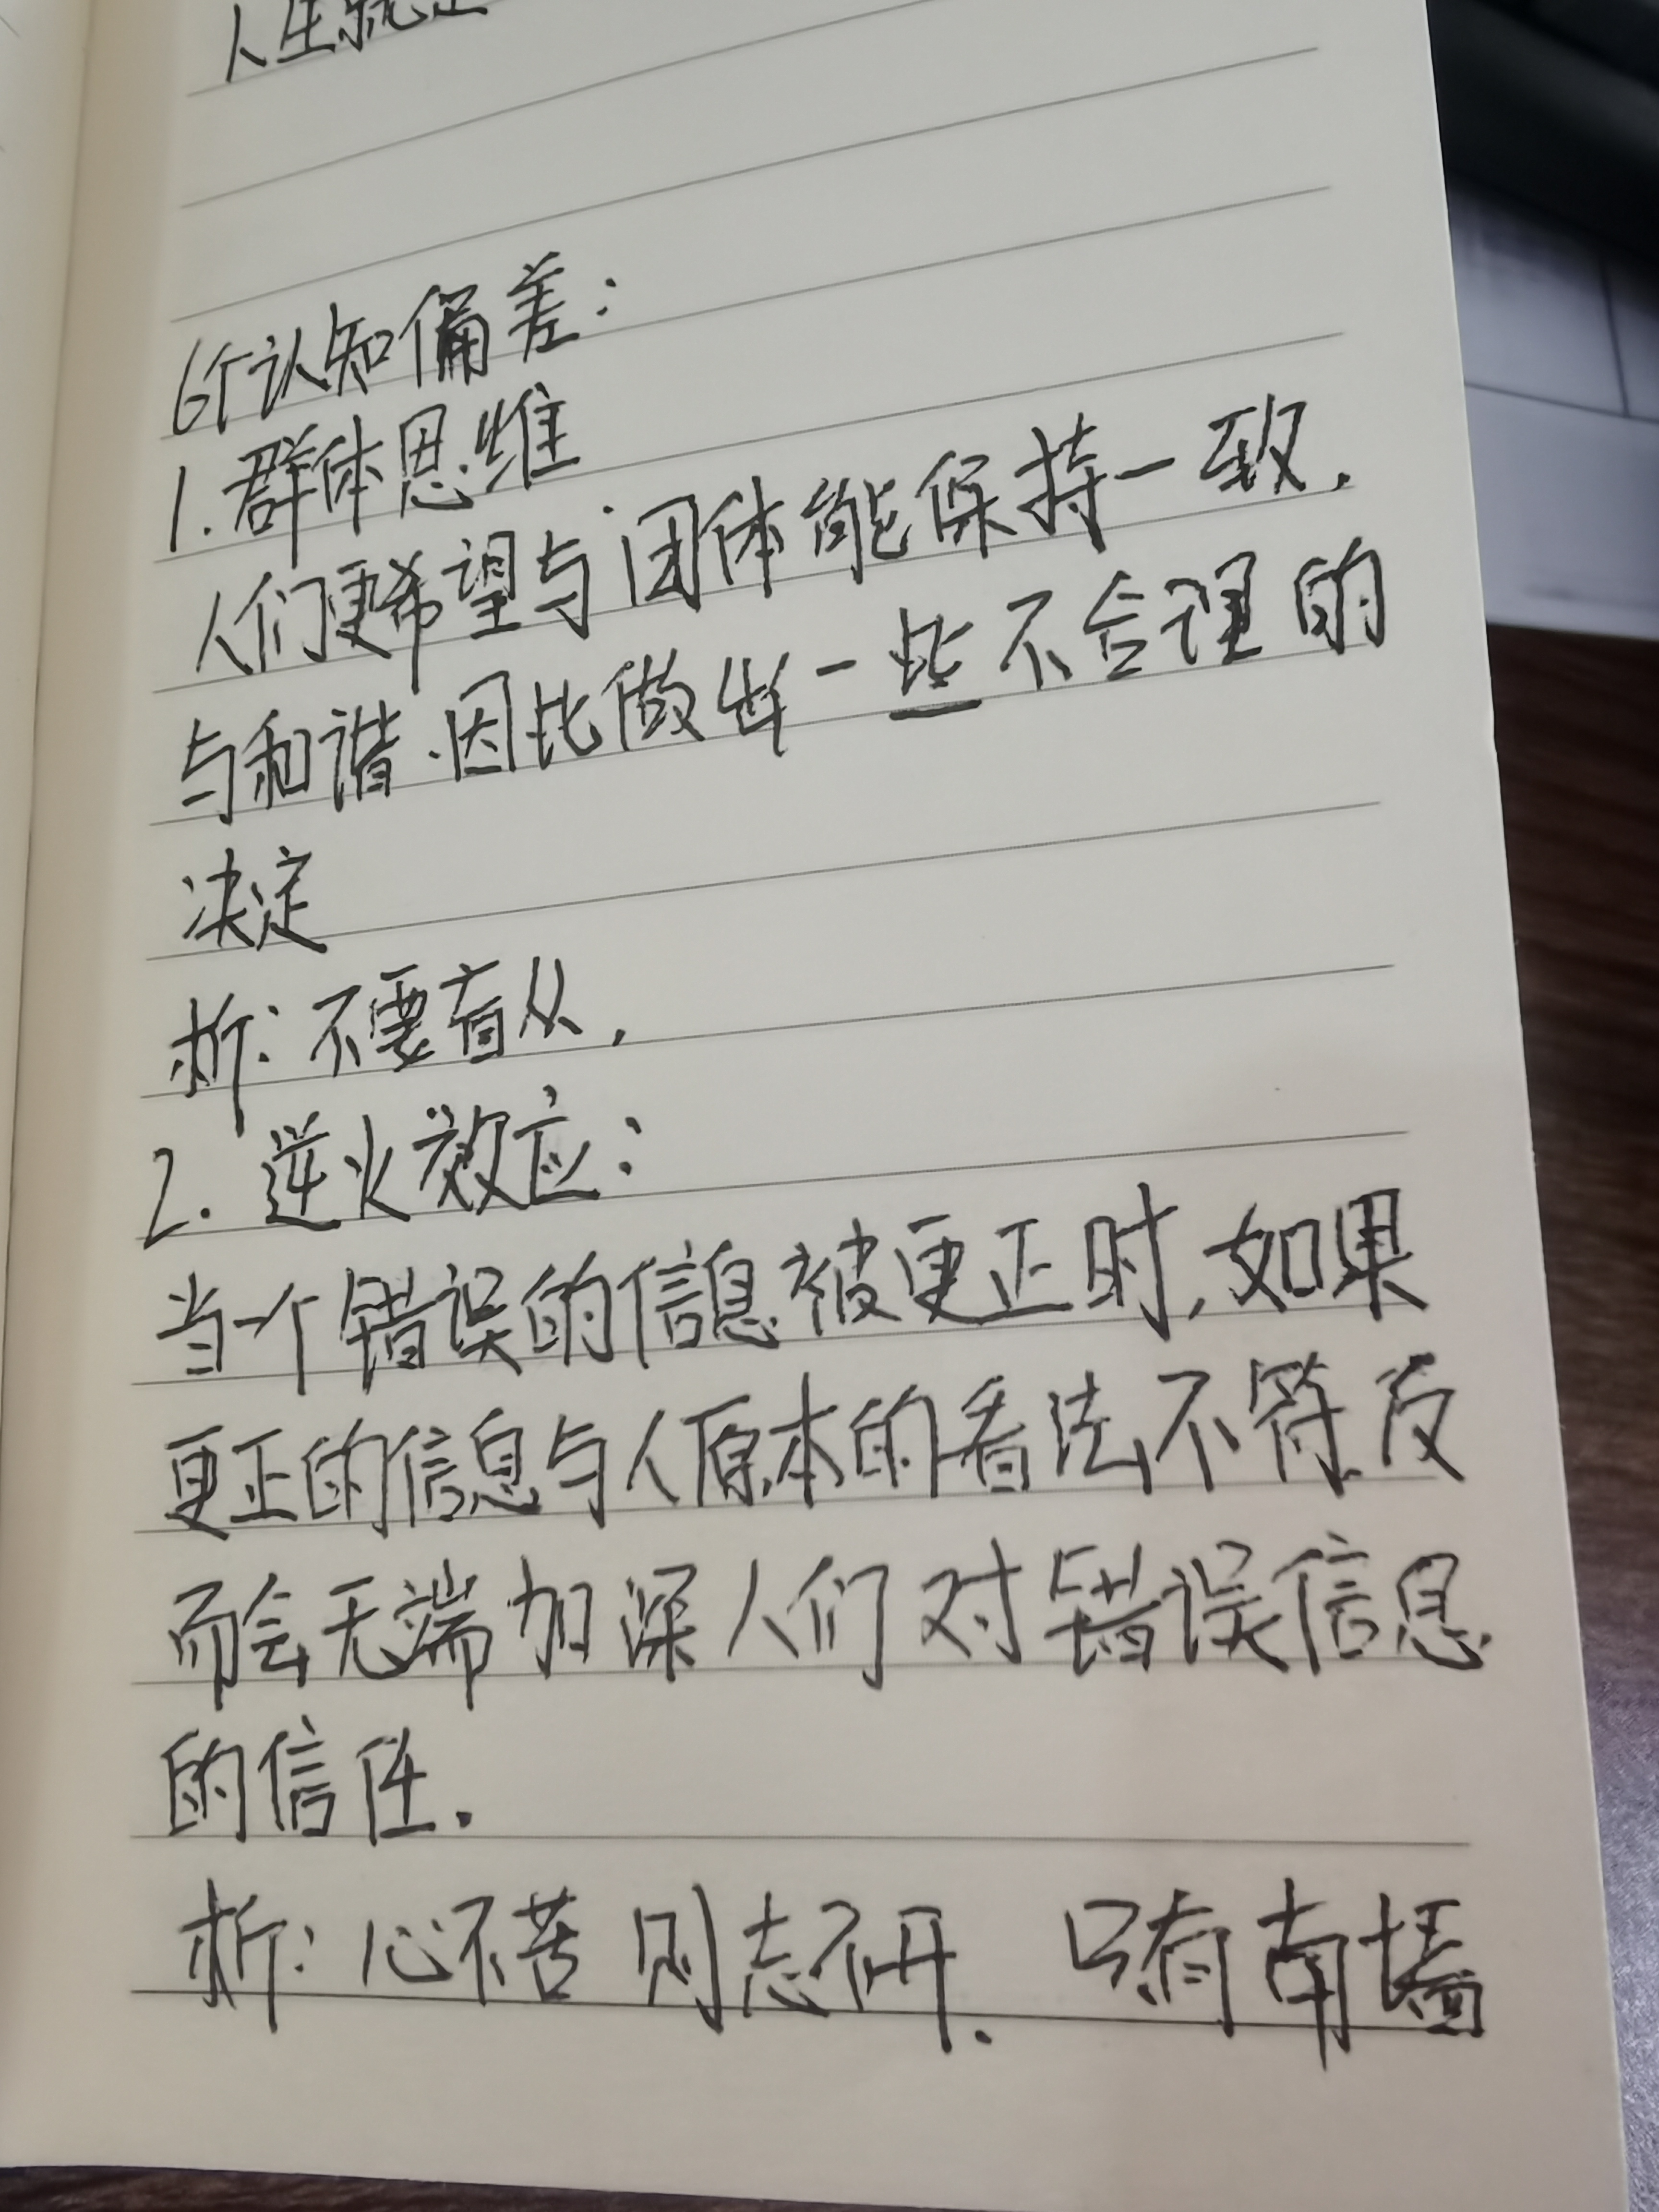 人生就是
6个认知偏差:
1.群体思维
人们更希望与团体能保持一致,
与和谐.因此做出一些不合理的
决定
析:不要盲从,
2.逆火效应:
当一个错误的信息被更正时,如果
更正的信息与人原本的看法不符,反
而会无端加深人们对错误信息
的信任.
析:心不苦则志不开. 只有南墙